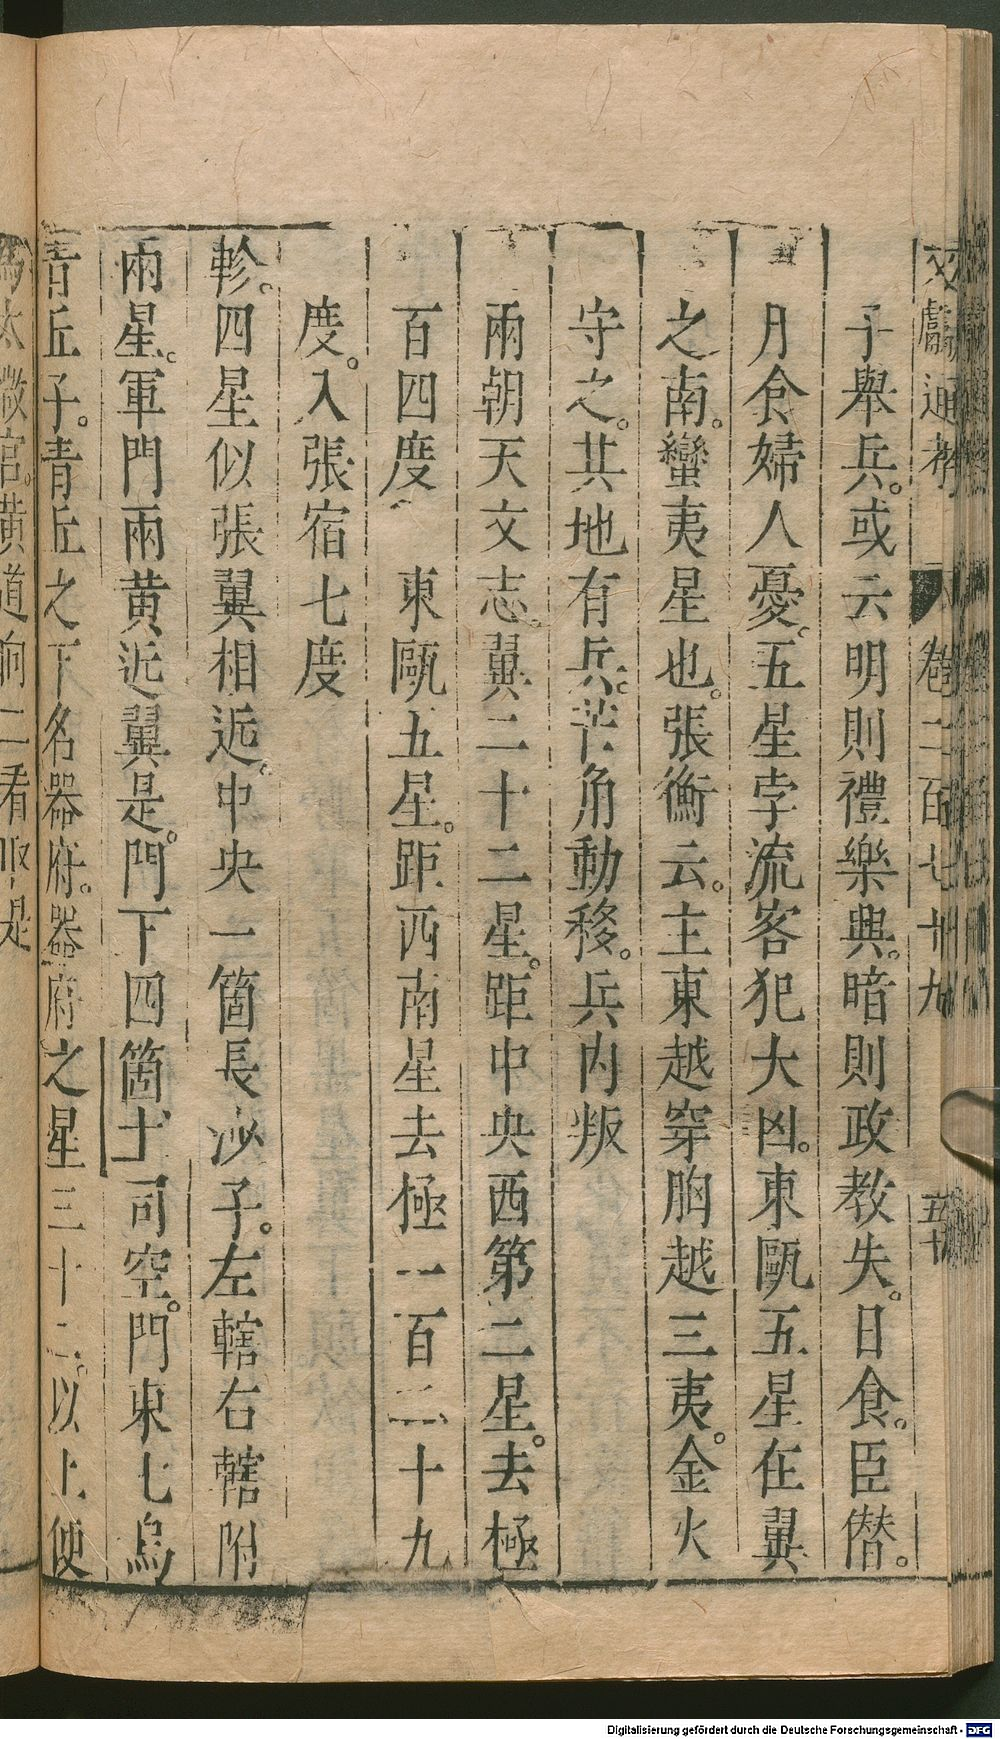 文獻通考 卷二百七十九 五十
子舉兵。或云明則禮樂興。暗則政教失。日食。臣僭。
月食婦人憂。五星孛流客犯大凶。東甌五星在翼
之南。蠻夷星也。張衡云。主東越穿胸越三夷。金火
守之。其地有兵。芒角動移。兵内叛
兩朝天文志。翼二十二星。距中央西第二星。去極
百四度 東甌五星。距西南星去極一百二十九
度。入張宿七度
軫。四星似張翼相近。中央一箇長沙子。左轄右轄附
兩星。軍門兩黄近翼是。門下四箇土司空。門東七烏
青丘子。青丘之下名器府。器府之星三十二。以上便
爲太微宫。黄道向二看取是
Digitalisierung gefördert durch die Deutsche Forschungsgemeinschaft - DFG